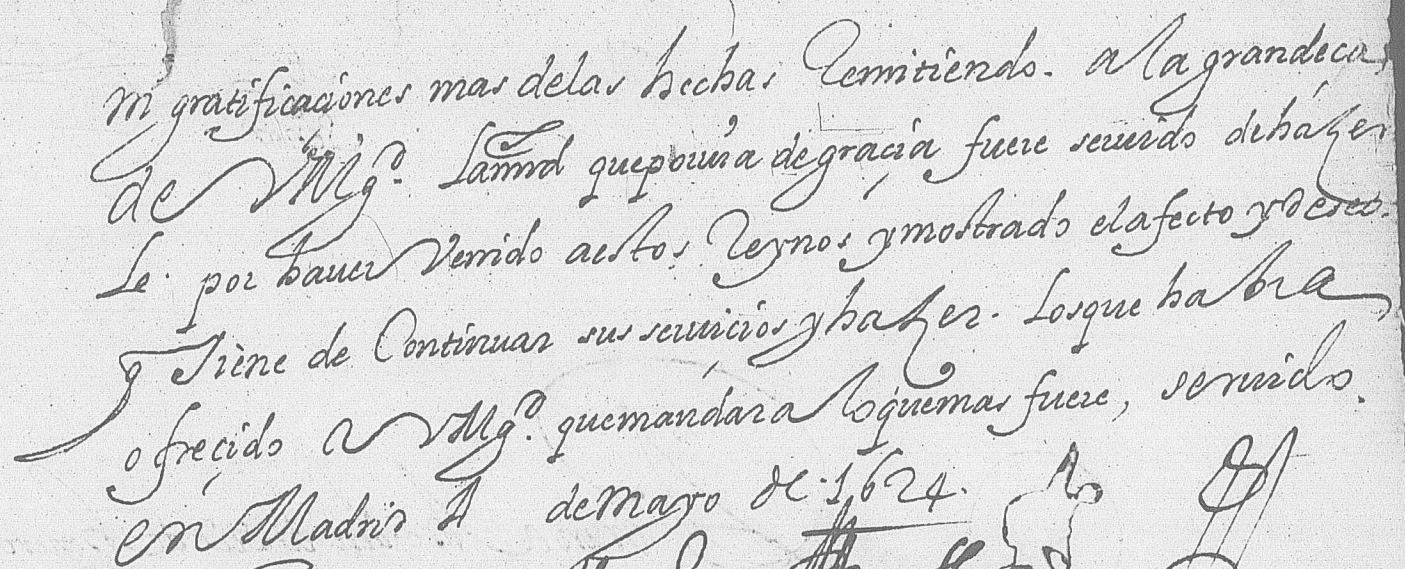 ni gratificaciones mas de las hechas Remitiendo. a la grandeça
de V Mgd. La mrd que por via de gracia fuere seruido de hazer
Le. por hauer Venido a estos Reynos y mostrado el afecto y deseo.
q Tiene de Continuar sus seruicios y hazer. Los que ha
ofrecido a V Mgd. que mandara lo que mas fuere, seruido.
en Madrid 4 de Mayo de .1624.